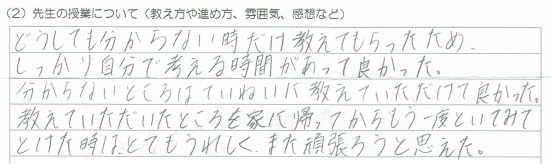 (2) 先生の授業について（教え方や進め方、雰囲気、感想など）
どうしても分からない時だけ教えてもらったため、
しっかり自分で考える時間があって良かった。
分からないところはていねいに教えていただけて良かった。
教えていただいたところを家に帰ってからもう一度といてみて
とけた時はとてもうれしく、また頑張ろうと思えた。